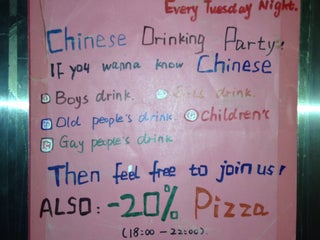 Every Tuesday Night.
Chinese Drinking Party!
If you wanna know Chinese
Boys drink. Girls drink.
Old people's drink. Children's
Gay people's drink
Then feel free to join us!
ALSO: -20% Pizza
(18:00 - 22:00).